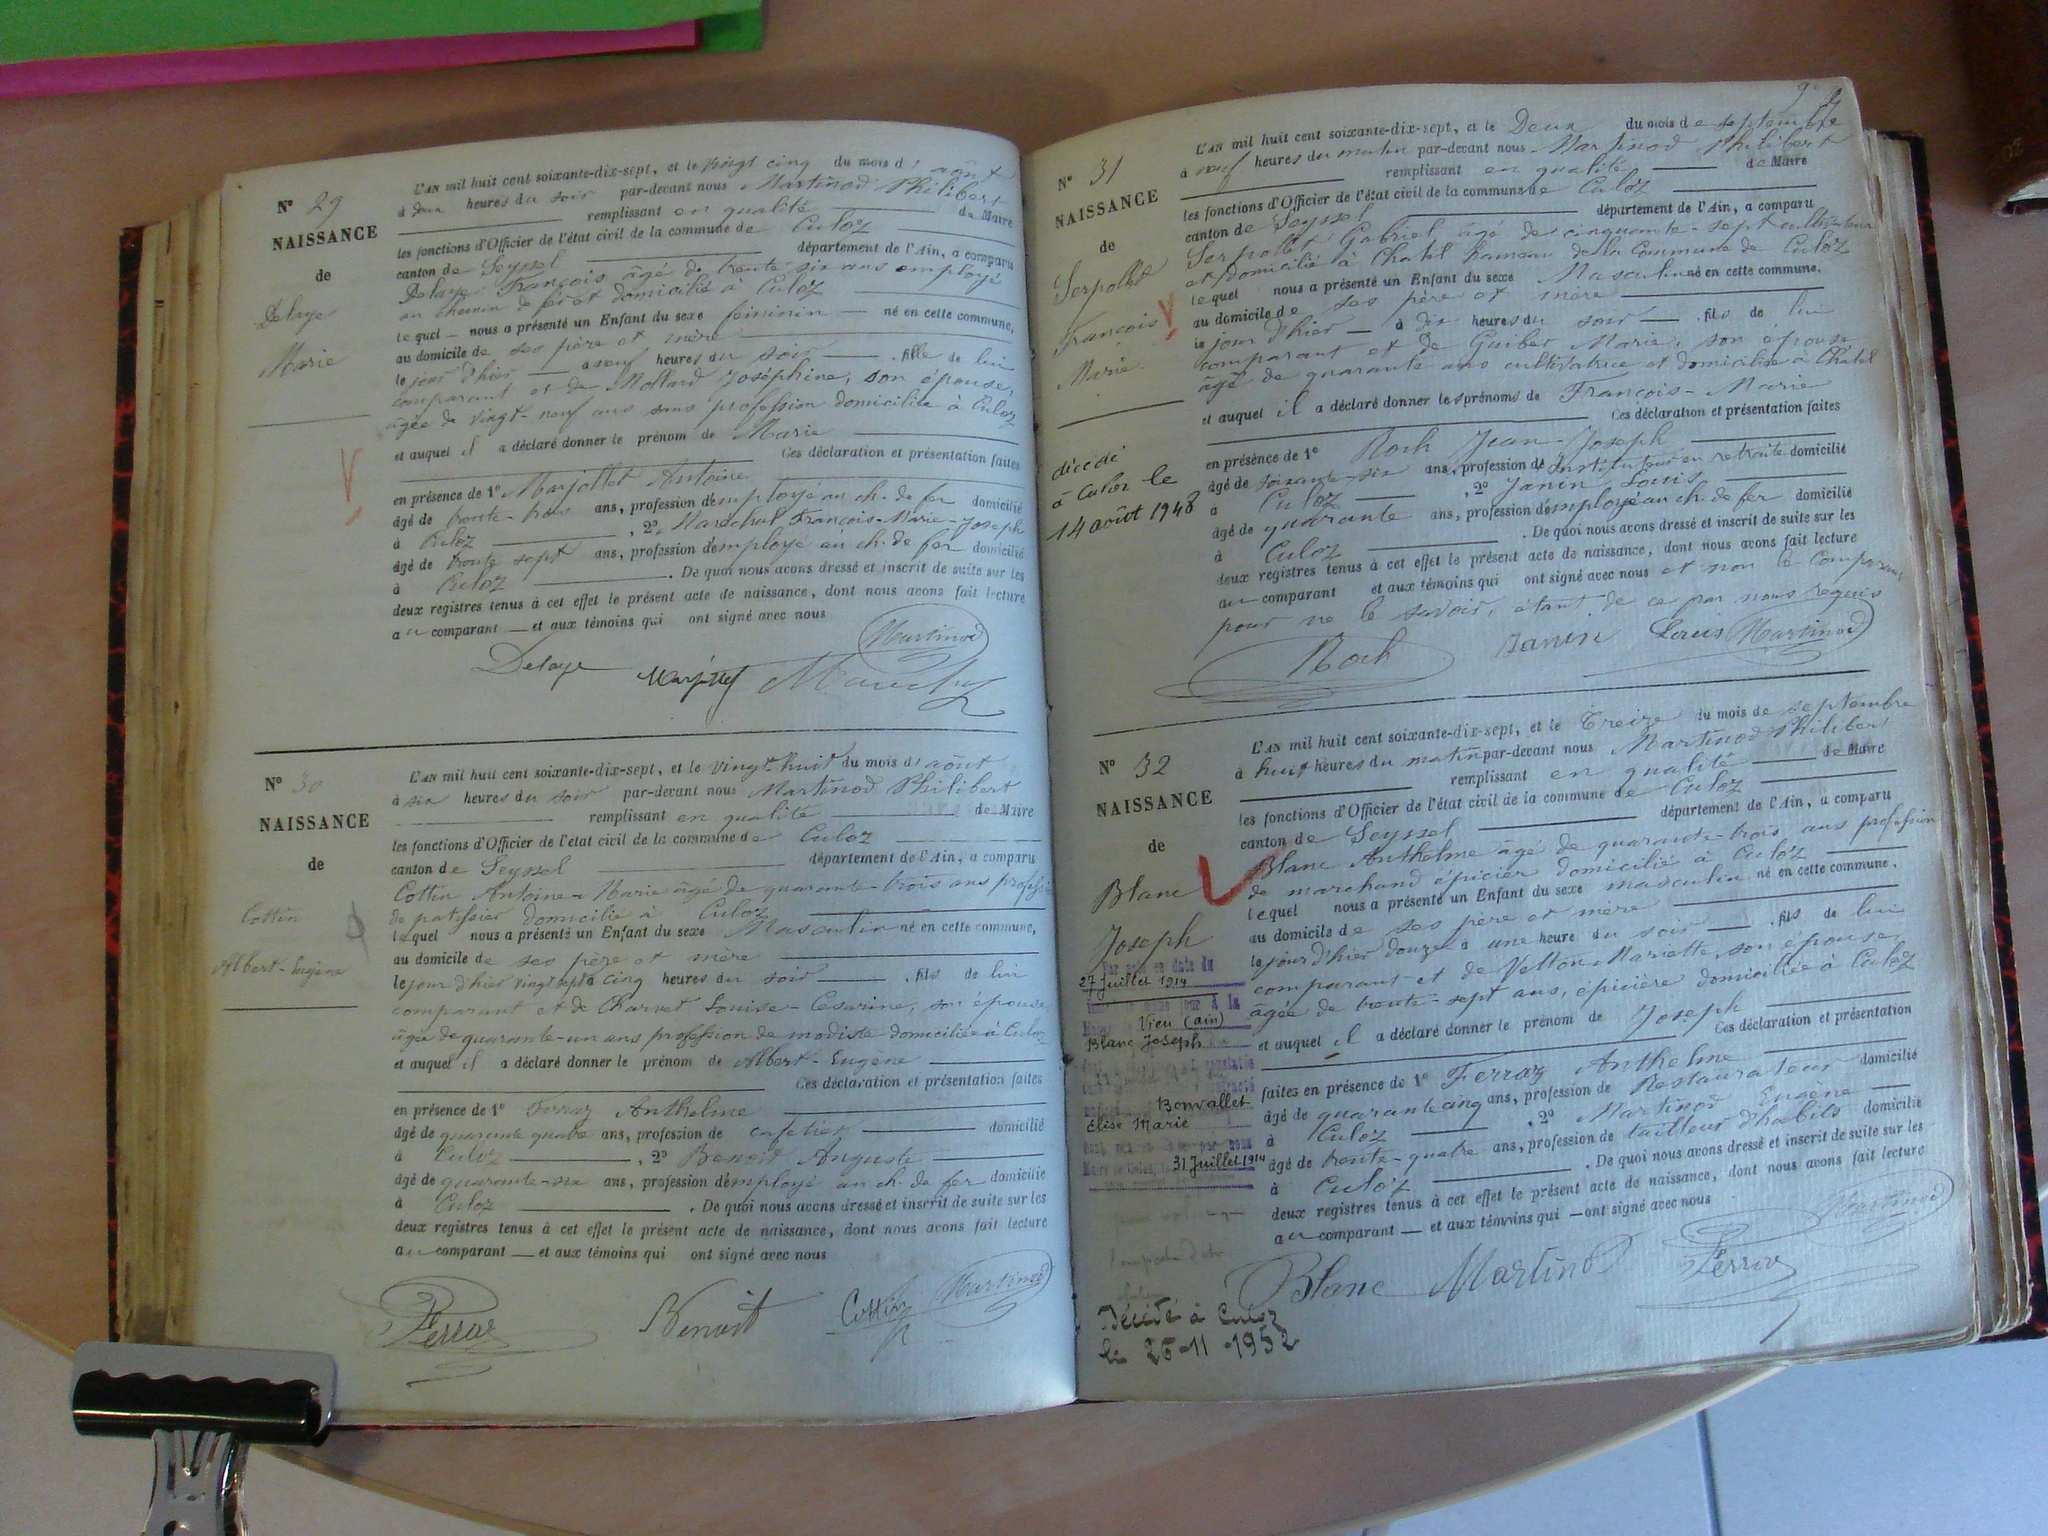 N° 29
NAISSANCE
de
Delaye
Marie
L'AN mil huit cent soixante-dix-sept, et le vingt cinq du mois d'août
à deux heures du soir par-devant nous Martinod Philibert
remplissant en qualité de Maire
les fonctions d'Officier de l'état civil de la commune de Culoz
canton de Seyssel département de l'Ain, a comparu
Delaye François âgé de trente six ans employé
au chemin de fer et domicilié à Culoz
lequel nous a présenté un Enfant du sexe féminin né en cette commune,
au domicile de ses père et mère
le jour d'hier à neuf heures du soir fille de lui
comparant et de Mollard Joséphine, son épouse,
âgée de vingt-neuf ans sans profession domiciliée à Culoz
et auquel il a déclaré donner le prénom de Marie
Ces déclaration et présentation faites
en présence de 1° Marjollet Antoine
âgé de trente-trois ans, profession d'employé au ch. de fer domicilié
à Culoz , 2° Maréchal François-Marie-Joseph
âgé de trente sept ans, profession d'employé au ch. de fer domicilié
à Culoz . De quoi nous avons dressé et inscrit de suite sur les
deux registres tenus à cet effet le présent acte de naissance, dont nous avons fait lecture
au comparant et aux témoins qui ont signé avec nous
Martinod
Delaye
N° 30
NAISSANCE
de
Cottin
Albert-Eugène
L'AN mil huit cent soixante-dix-sept, et le vingt huit du mois d'août
à six heures du soir par-devant nous Martinod Philibert
remplissant en qualité de Maire
les fonctions d'Officier de l'état civil de la commune de Culoz
canton de Seyssel département de l'Ain, a comparu
Cottin Antoine-Marie âgé de quarante-trois ans profession
de patissier domicilié à Culoz
lequel nous a présenté un Enfant du sexe Masculin né en cette commune,
au domicile de ses père et mère
le jour d'hier vingt sept à cinq heures du soir fils de lui
comparant et de Charvet Louise-Césarine, son épouse
âgée de quarante-un ans profession de modiste domiciliée à Culoz
et auquel il a déclaré donner le prénom de Albert-Eugène
Ces déclaration et présentation faites
en présence de 1° Ferraz Anthelme
âgé de quarante quatre ans, profession de cafetier domicilié
à Culoz , 2° Benoit Auguste
âgé de quarante-six ans, profession d'employé au ch. de fer domicilié
à Culoz . De quoi nous avons dressé et inscrit de suite sur les
deux registres tenus à cet effet le présent acte de naissance, dont nous avons fait lecture
au comparant et aux témoins qui ont signé avec nous
Ferraz Benoit Cottin Martinod
N° 31
NAISSANCE
de
Serpollet
François
Marie
décédé
à Culoz le
14 août 1948
L'AN mil huit cent soixante-dix-sept, et le Deux du mois de septembre
à neuf heures du matin par-devant nous Martinod Philibert
remplissant en qualité de Maire
les fonctions d'Officier de l'état civil de la commune de Culoz
canton de Seyssel département de l'Ain, a comparu
Serpollet Gabriel âgé de cinquante-sept cultivateur
et domicilié à Chatel hameau de la Commune de Culoz
lequel nous a présenté un Enfant du sexe Masculin né en cette commune,
au domicile de ses père et mère
le jour d'hier à dix heures du soir fils de lui
comparant et de Guibet Marie, son épouse
âgée de quarante ans cultivatrice et domiciliée à Chatel
et auquel il a déclaré donner les prénoms de François-Marie
Ces déclaration et présentation faites
en présence de 1° Roch Jean-Joseph
âgé de soixante-six ans, profession de Instituteur en retraite domicilié
à Culoz , 2° Janin Louis
âgé de quarante ans, profession d'employé au ch. de fer domicilié
à Culoz . De quoi nous avons dressé et inscrit de suite sur les
deux registres tenus à cet effet le présent acte de naissance, dont nous avons fait lecture
au comparant et aux témoins qui ont signé avec nous et non le comparant
pour ne le savoir, étant de ce par nous requis
Roch Janin Louis Martinod
N° 32
NAISSANCE
de
Blanc
Joseph
27 Juillet 1914
Vieu (ain)
Blanc Joseph
Bonvallet
Elise Marie
31 Juillet 1914
Décédé à Culoz
le 26-11-1952
L'AN mil huit cent soixante-dix-sept, et le Treize du mois de septembre
à huit heures du matin par-devant nous Martinod Philibert
remplissant en qualité de Maire
les fonctions d'Officier de l'état civil de la commune de Culoz
canton de Seyssel département de l'Ain, a comparu
Blanc Anthelme âgé de quarante-trois ans profession
de marchand épicier domicilié à Culoz
lequel nous a présenté un Enfant du sexe masculin né en cette commune,
au domicile de ses père et mère
le jour d'hier douze à une heure du soir fils de lui
comparant et de Vetton Mariette, son épouse,
âgée de trente-sept ans, épicière domiciliée à Culoz
et auquel il a déclaré donner le prénom de Joseph
Ces déclaration et présentation
faites en présence de 1° Ferraz Anthelme
âgé de quarante cinq ans, profession de Restaurateur domicilié
à Culoz , 2° Martinod Eugène
âgé de trente-quatre ans, profession de tailleur d'habits domicilié
à Culoz . De quoi nous avons dressé et inscrit de suite sur les
deux registres tenus à cet effet le présent acte de naissance, dont nous avons fait lecture
au comparant et aux témoins qui ont signé avec nous
Martinod
Blanc Martinod Ferraz